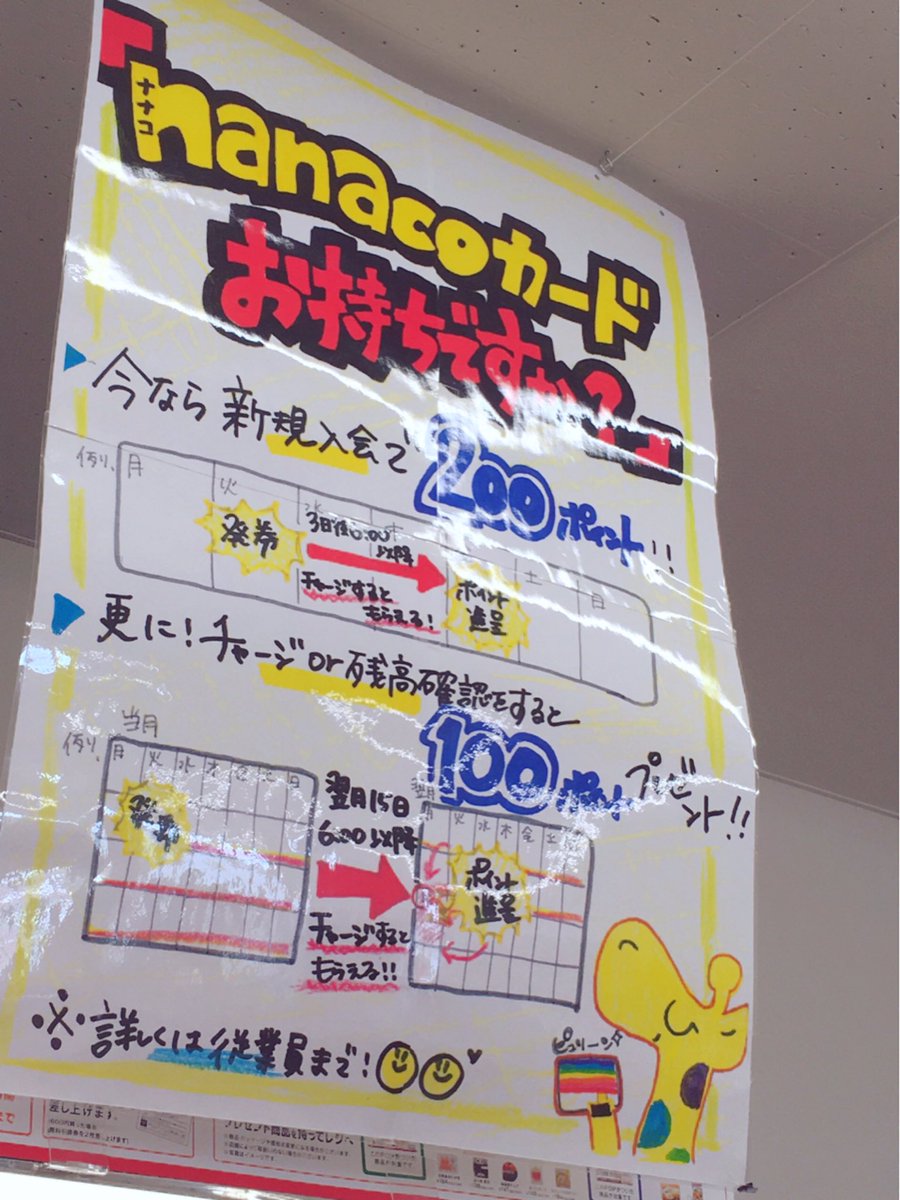 「nanacoカード
ナナコ
お持ちですか?」
今なら新規入会で200ポイント!!
例)、月 火 水 木 土 日
発券
3日後6:00以降
チャージするともらえる!
ポイント進呈
更に!チャージor残高確認をすると
100ポイントプレゼント!!
例)、当月
月 火 水 木 金 土 日
翌月15日
6:00以降
チャージすると
もらえる!!
翌月
月 火 水 木 金 土
ポイント
進呈
※詳しくは従業員まで!
ピュリーン
差し上げます。
プレゼント商品を持ってレジへ